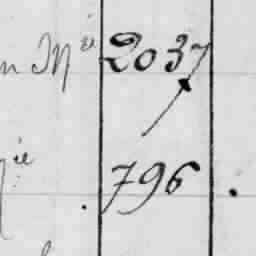 n M.ie 2037
ie 796 .